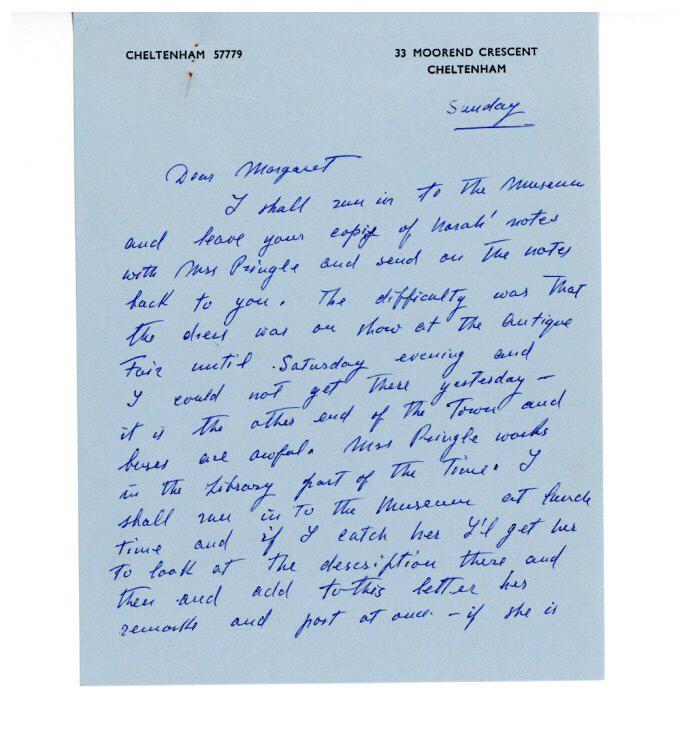 CHELTENHAM 57779
33 MOOREND CRESCENT
CHELTENHAM
Sunday
Dear Margaret
I shall run in to the Museum
and leave your copy of Norah' notes
with Mrs Pringle and send on the notes
back to you. The difficulty was that
the dress was on show at the Antique
Fair until Saturday evening and
I could not get there yesterday –
it is the other end of the Town and
buses are awful. Mrs Pringle works
in the Library part of the Time. I
shall run in to the Museum at lunch
time and if I catch her I'll get her
to look at the description there and
then and add to this letter her
remarks and post at once – if she is